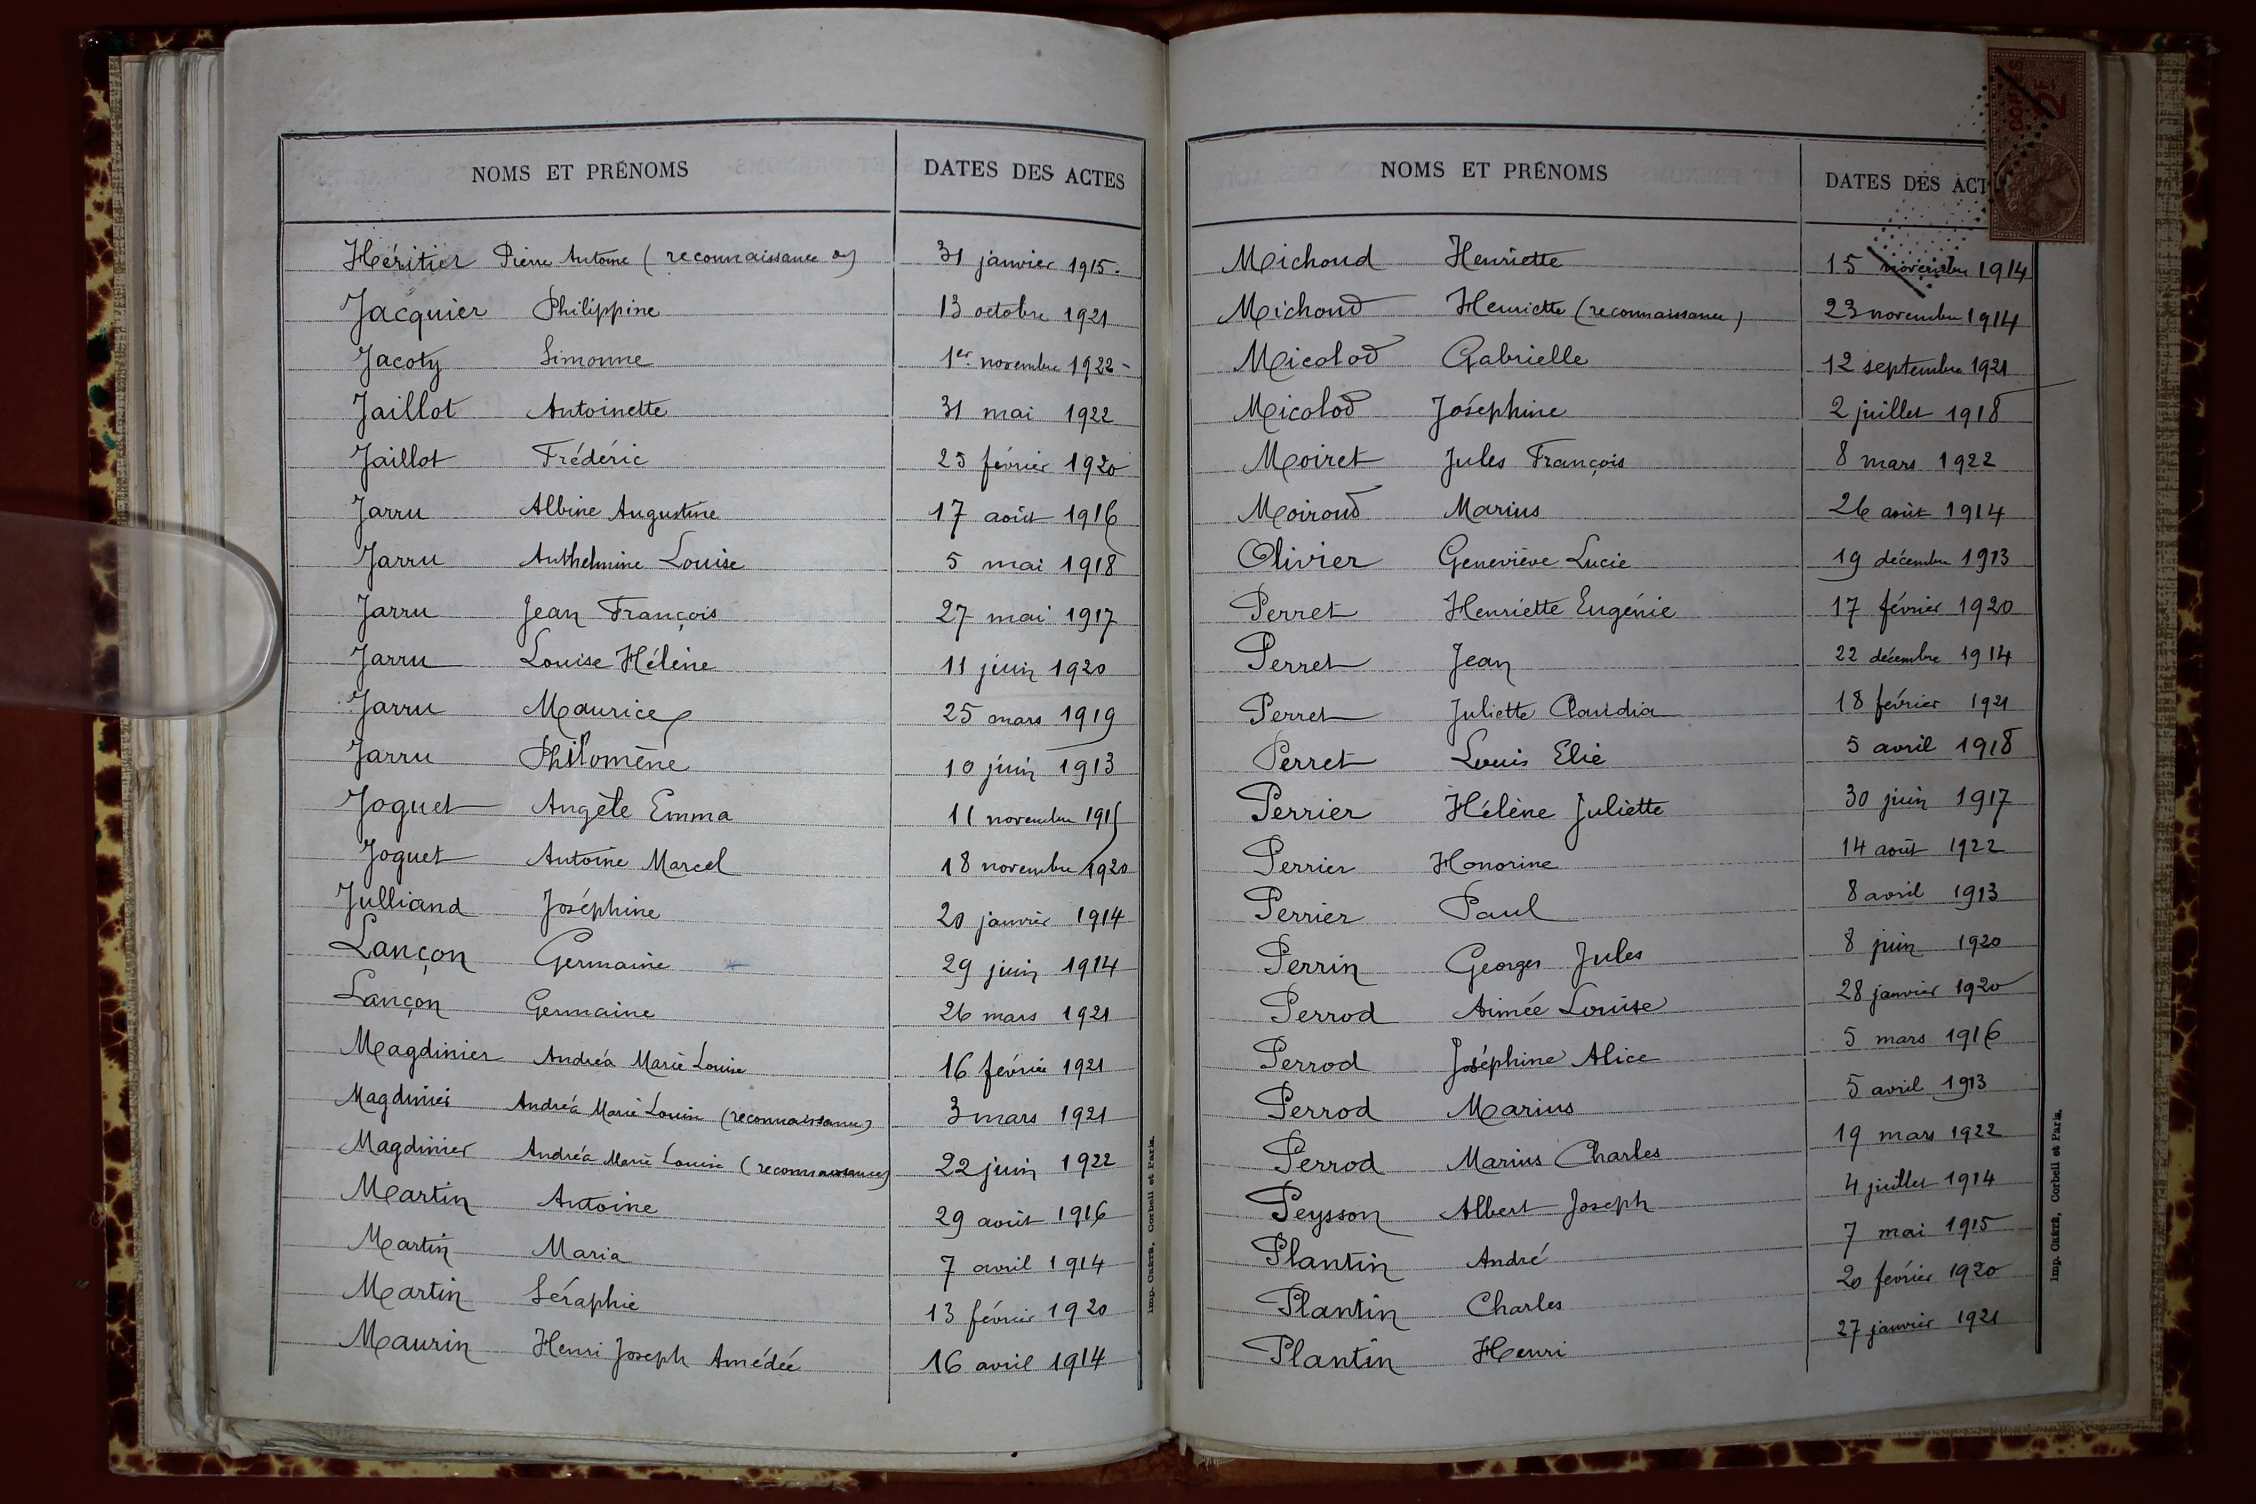 NOMS ET PRÉNOMS DATES DES ACTES
Héritier Pierre Antoine (reconnaissance de) 31 janvier 1915.
Jacquier Philippine 13 octobre 1921
Jacoty Simonne 1er novembre 1922 -
Jaillot Antoinette 31 mai 1922
Jaillot Frédéric 25 février 1920
Jarru Albine Augustine 17 août 1916
Jarru Anthelmine Louise 5 mai 1918
Jarru Jean François 27 mai 1917
Jarru Louise Hélène 11 juin 1920
Jarru Maurice 25 mars 1919
Jarru Philomène 10 juin 1913
Joguet Angèle Emma 11 novembre 1915
Joguet Antoine Marcel 18 novembre 1920
Julliand Joséphine 20 janvier 1914
Lançon Germaine 29 juin 1914
Lançon Germaine 26 mars 1921
Magdinier Andréa Marie Louise 16 février 1921
Magdinier Andréa Marie Louise (reconnaissance) 3 mars 1921
Magdinier Andréa Marie Louise (reconnaissance) 22 juin 1922
Martin Antoine 29 août 1916
Martin Maria 7 avril 1914
Martin Séraphie 13 février 1920
Maurin Henri Joseph Amédée 16 avril 1914
Imp. Oberé, Corbeil et Paris.
NOMS ET PRÉNOMS DATES DES ACT
Michoud Henriette 15 novembre 1914
Michoud Henriette (reconnaissance) 23 novembre 1914
Micolod Gabrielle 12 septembre 1921
Micolod Joséphine 2 juillet 1918
Moiret Jules François 8 mars 1922
Moiroud Marius 26 août 1914
Olivier Geneviève Lucie 19 décembre 1913
Perret Henriette Eugénie 17 février 1920
Perret Jean 22 décembre 1914
Perret Juliette Claudia 18 février 1921
Perret Louis Elie 5 avril 1918
Perrier Hélène Juliette 30 juin 1917
Perrier Honorine 14 août 1922
Perrier Paul 8 avril 1913
Perrin Georges Jules 8 juin 1920
Perrod Aimée Louise 28 janvier 1920
Perrod Joséphine Alice 5 mars 1916
Perrod Marius 5 avril 1913
Perrod Marius Charles 19 mars 1922
Peysson Albert Joseph 4 juillet 1914
Plantin André 7 mai 1915
Plantin Charles 20 février 1920
Plantin Henri 27 janvier 1921
Imp. Oberé, Corbeil et Paris.